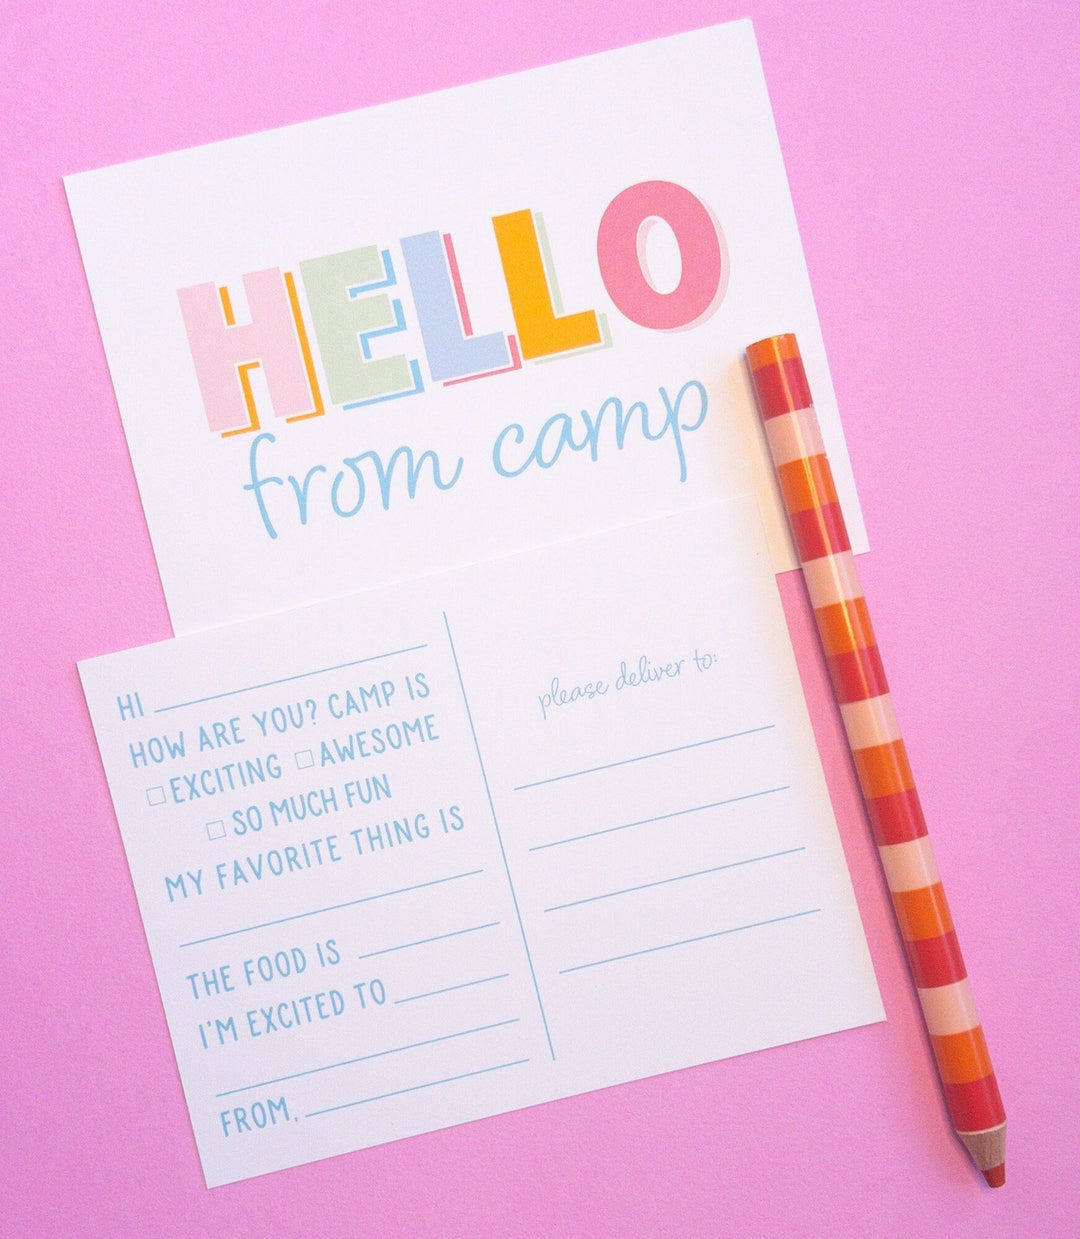 HELLO
from camp
HI
HOW ARE YOU? CAMP IS
☐ EXCITING ☐ AWESOME
☐ SO MUCH FUN
MY FAVORITE THING IS
THE FOOD IS
I'M EXCITED TO
FROM,
please deliver to: